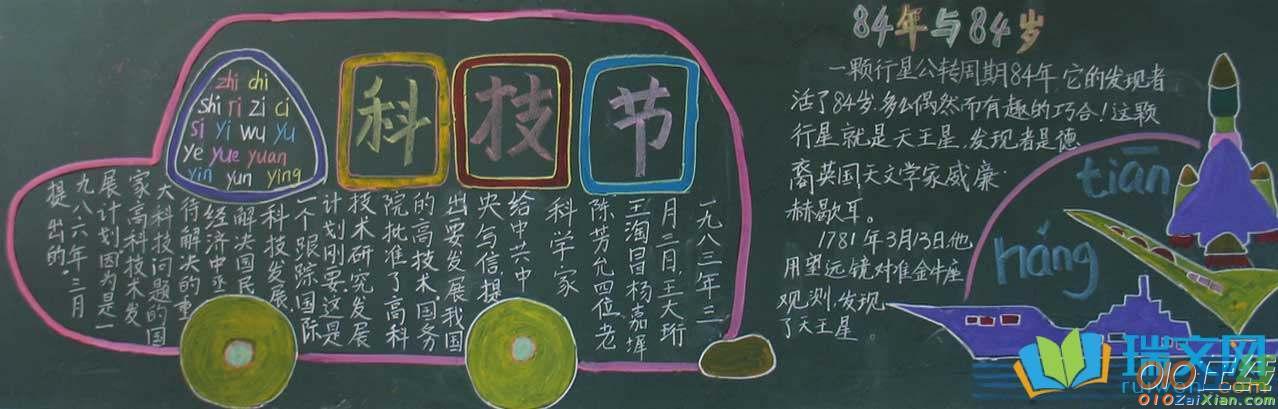 zhi chi
shi ri zi ci
si yi wu yu
ye yue yuan
yin yun ying
科技节
一九八三年三
月二日,王大珩
王淘昌杨嘉墀
陈芳允四位老
科学家
给中共中
央与信,提
出要发展我国
的高技术,国务
院批准了高科
技术研究发展
计划刚要,这是
一个跟踪国际
科技发展,
解决国民
经济中亟
待解决的重
大科技问题的国
家高科技术发
展计划因为是一
九八六年三月
提出的。
84年与84岁
一颗行星公转周期84年,它的发现者
活了84岁,多么偶然而有趣的巧合!这颗
行星就是天王星,发现者是德
裔英国天文学家威廉·
赫歇耳。
1781年3月13日他
用望远镜对准金牛座
观测,发现
了天王星。
tiān
háng
瑞文网
ruiwen.com
010在线
010ZaiXian.com